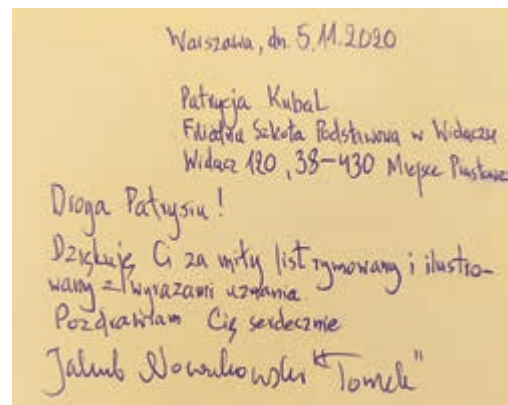 Warszawa, dn. 5.11.2020
Patrycja Kubal
Filialna Szkoła Podstawowa w Widaczu
Widacz 120, 38-430 Miejsce Piastowe
Droga Patrysiu!
Dziękuję Ci za miły list rymowany i ilustro-
wany z wyrazami uznania.
Pozdrawiam Cię serdecznie
Jakub Nowakowski "Tomek"